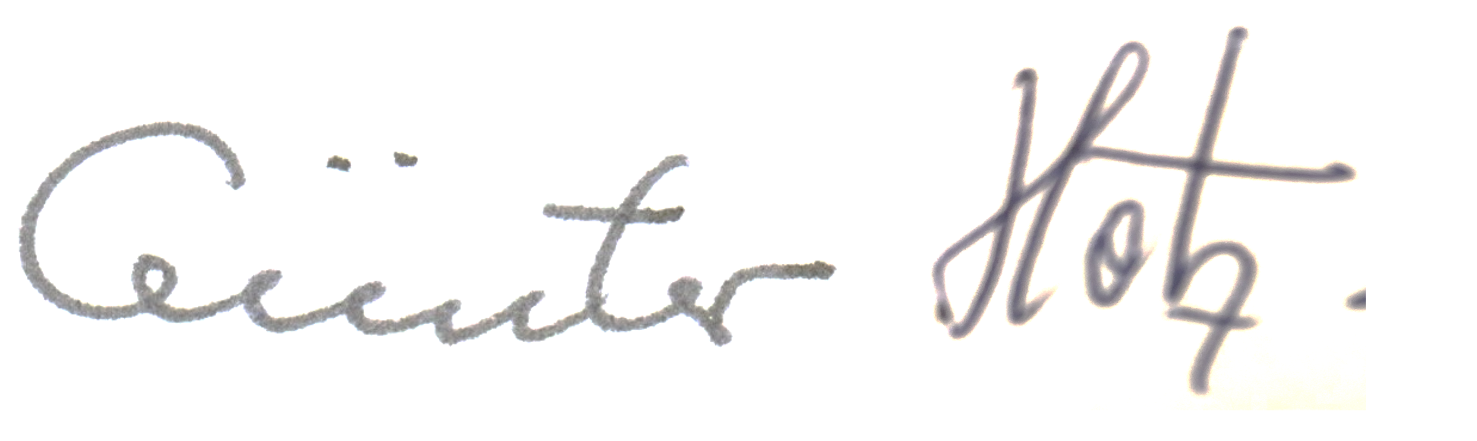 Günter Hotz